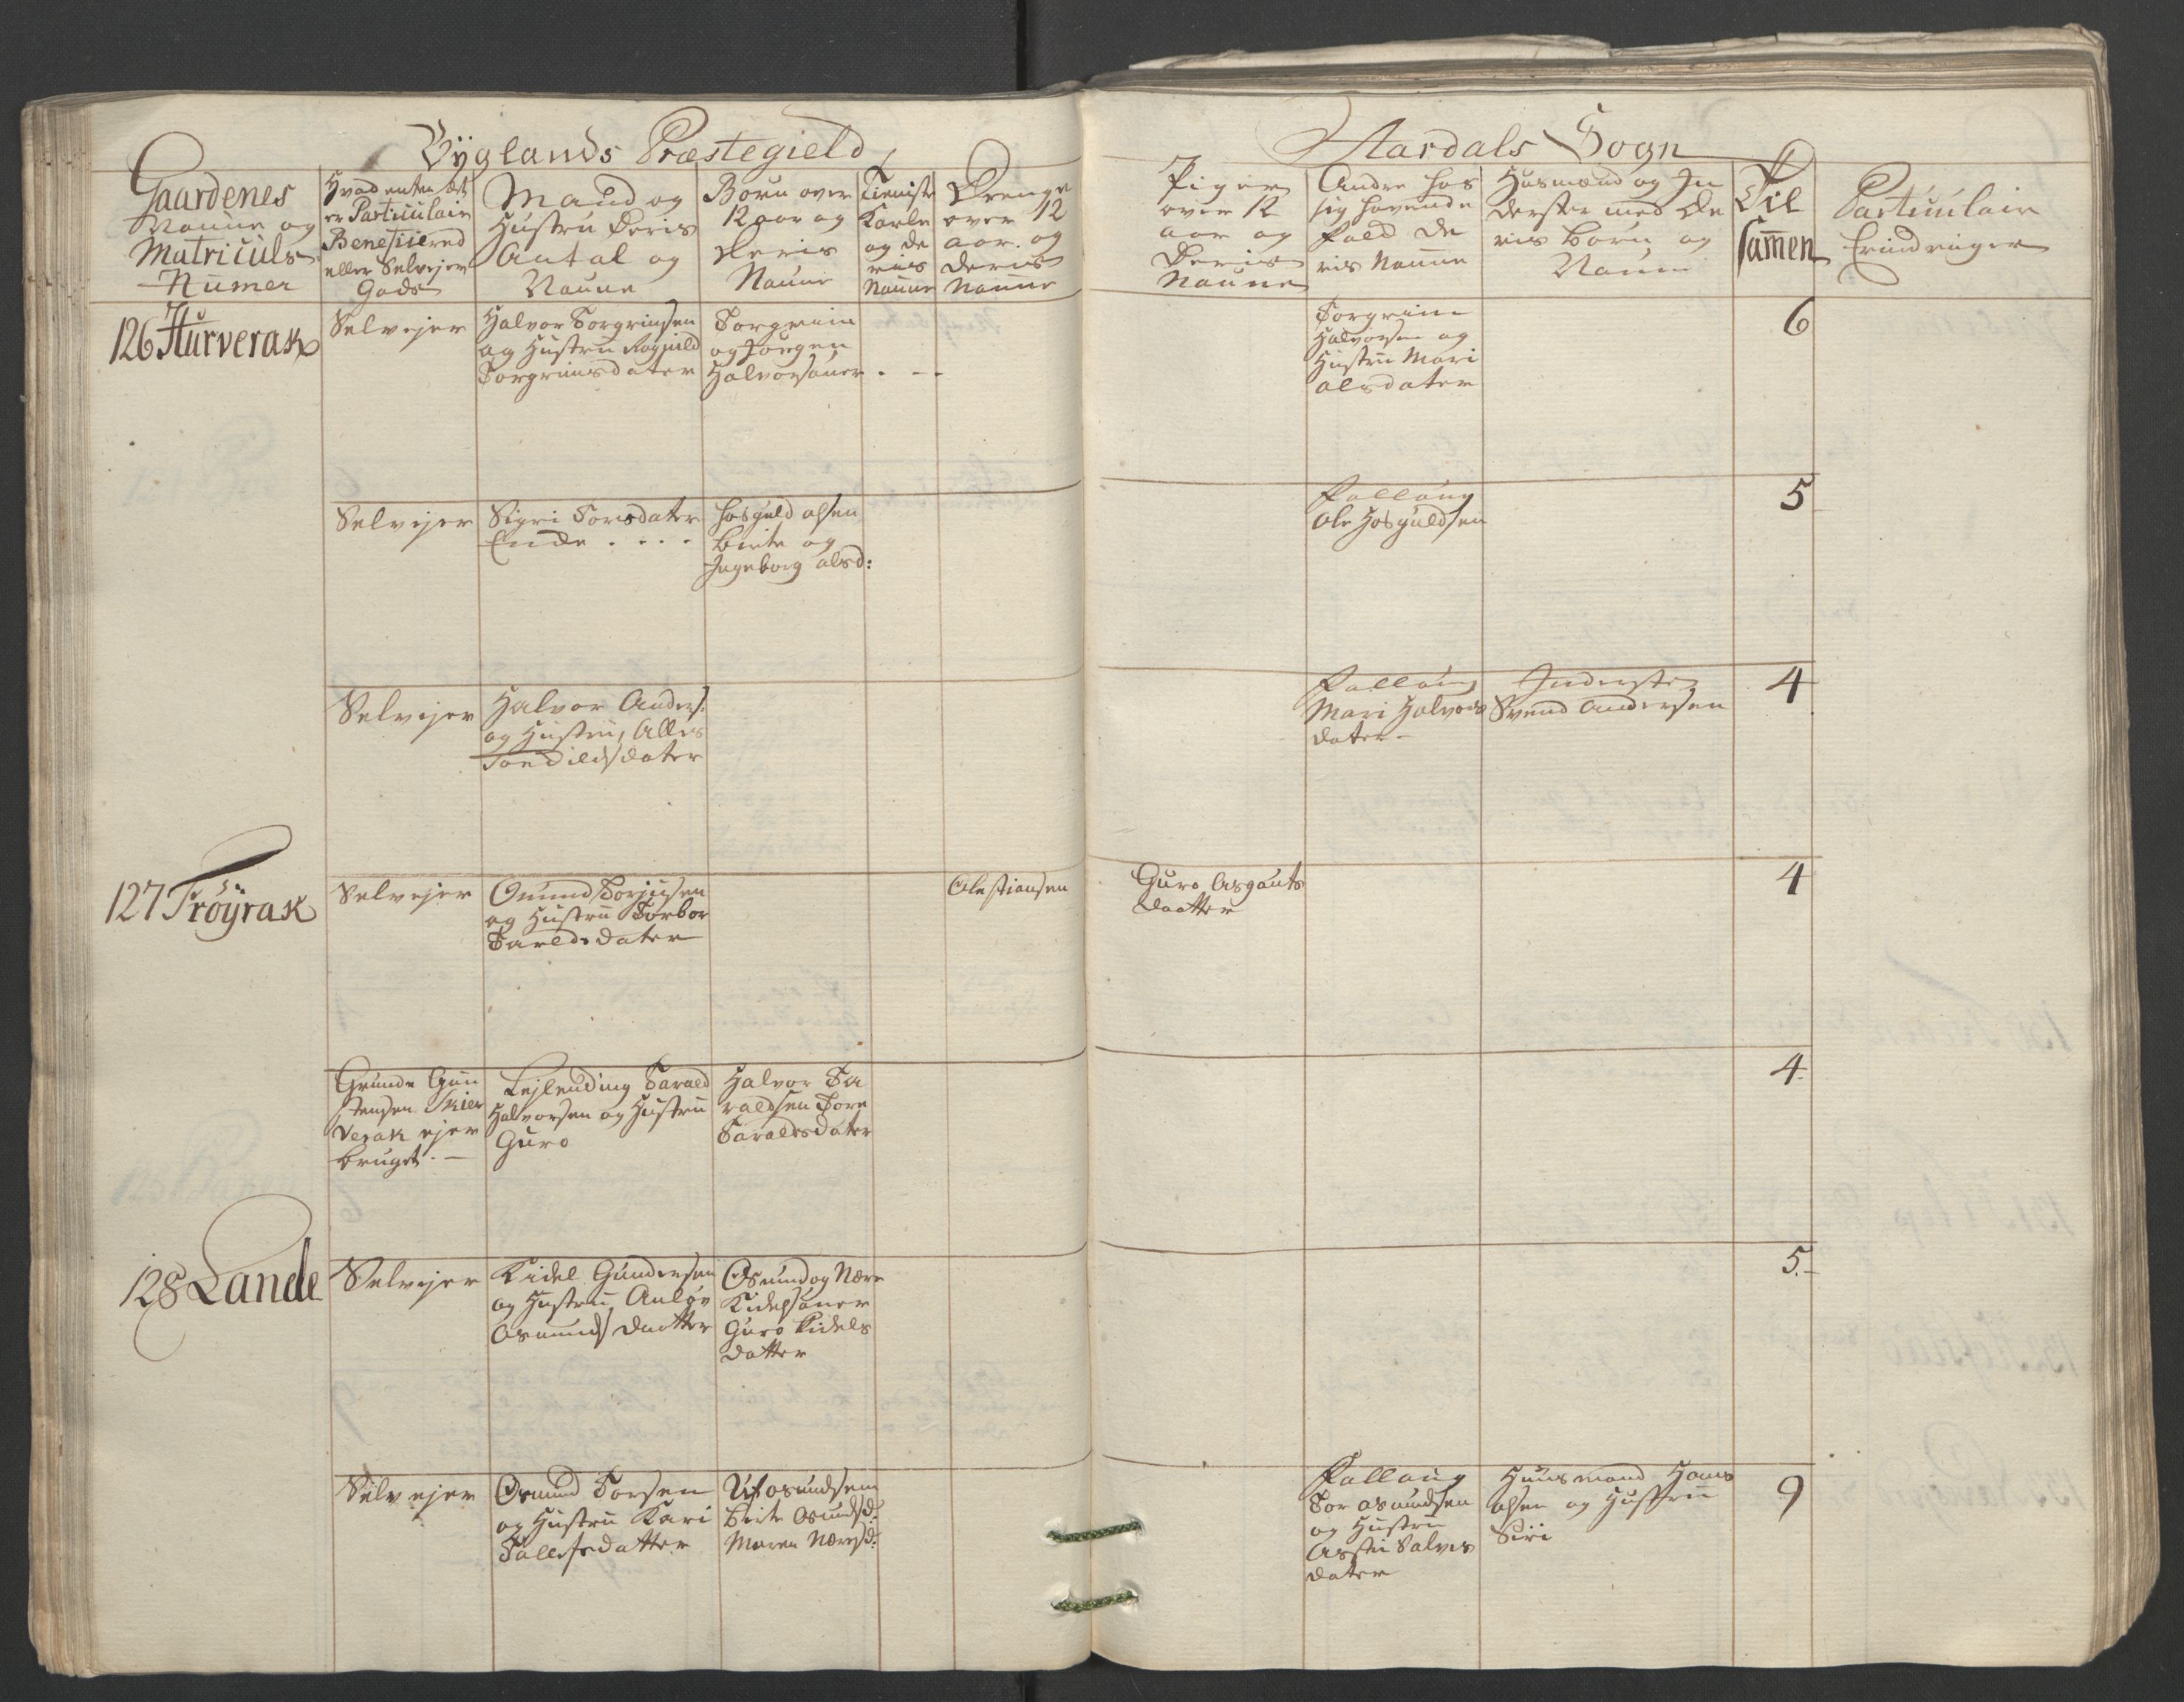 Byglands Præstegield
Aardals Sogn
Gaardenes
Naune og
Matriculs
Numer
Hvad enten det
er Particulair
Beneficered
eller Selvejer
Gods
Mand og
Hustru Deris
Antal og
Naune
Børn over
12 aar og
Deris
Naune
Tieniste
Karle
og de
ris
Naune
Drenge
over 12
aar og
Deris
Naune
Piger
over 12
aar og
Deris
Naune
Andre hos
sig havende
Folk De
ris Naune
Husmænd og In
derster med De
ris børn og
Naune
Til
samen
Particulair
Erindringer
126 Hurverak
Selvejer
Halvor Torgrimsen
og Hustru Rognild
Torgrimsdater
Torgrim
og Jørgen
Halvorsøner
Torgrim
Halvorsen og
Hustru Mari
olsdater
6
Selvejer
Sigri Torsdater
Enke
Hosguld olsen
birte og
Ingeborg olsd:
Follaug
Ole Hosguldsen
5
Selvejer
Halvor Anders:
og Hustru,
dater
Follaug
Mari Halvors
dater
Inderste
Svend Andersen
4
127 Frøyrak
Selvejer
Omund Torjusen
og Hustru Torbor
Tarelds dater
Ole stiansen
Guro Asgouts
daatter
4
Grunde Gun
stensen Skier
verak ejer
bruget
Lejlending Tarald
Halvorsen og Hustru
Guro
Halvor Ta
raldsen Tore
Taraldsdater
4
128 Lande
Selvejer
Kidel Gundersen
og Hustru Anløv
Osmunds daatter
Osmund og Nære
Kidelsøner
Guro Kidels
datter
5
Selvejer
Osmund Torsen
og Hustru Kari
Tallefsdatter
Ulf osmundsen
birte Osmundsd:
Maren Næresd:
Follaug
Tor osmundsen
og Hustru
Salves
dater
Huusmand Hans
olsen og Hustru
Siri
9